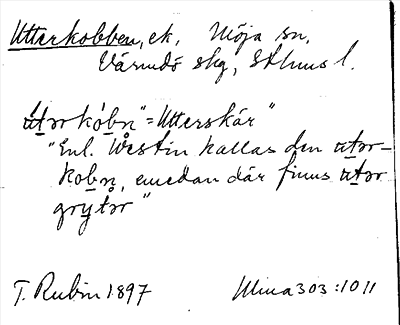 Utterkobben, ek, Möja sn,
Värmdö skg, Sthlms l.
ʉtərkob̥n̥" = Utterskär"
"Enl. Westin kallas den ʉtər-
kobn̥, emedan där finns ʉtər
grytər"
T. Rubin 1897 Mina 303:1011